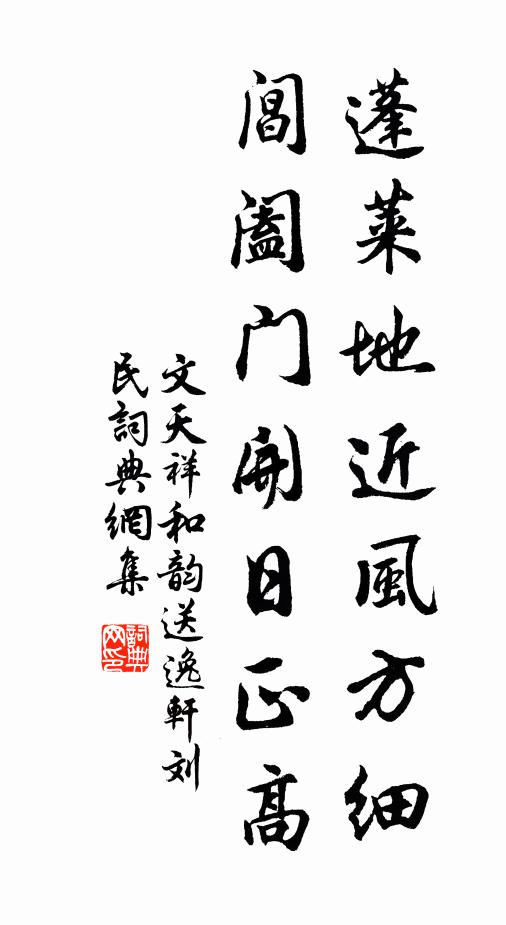 蓬莱地近風方细
閶阖门開日正高
文天祥和韵送逸軒刘
民詞典網集
詞典网印